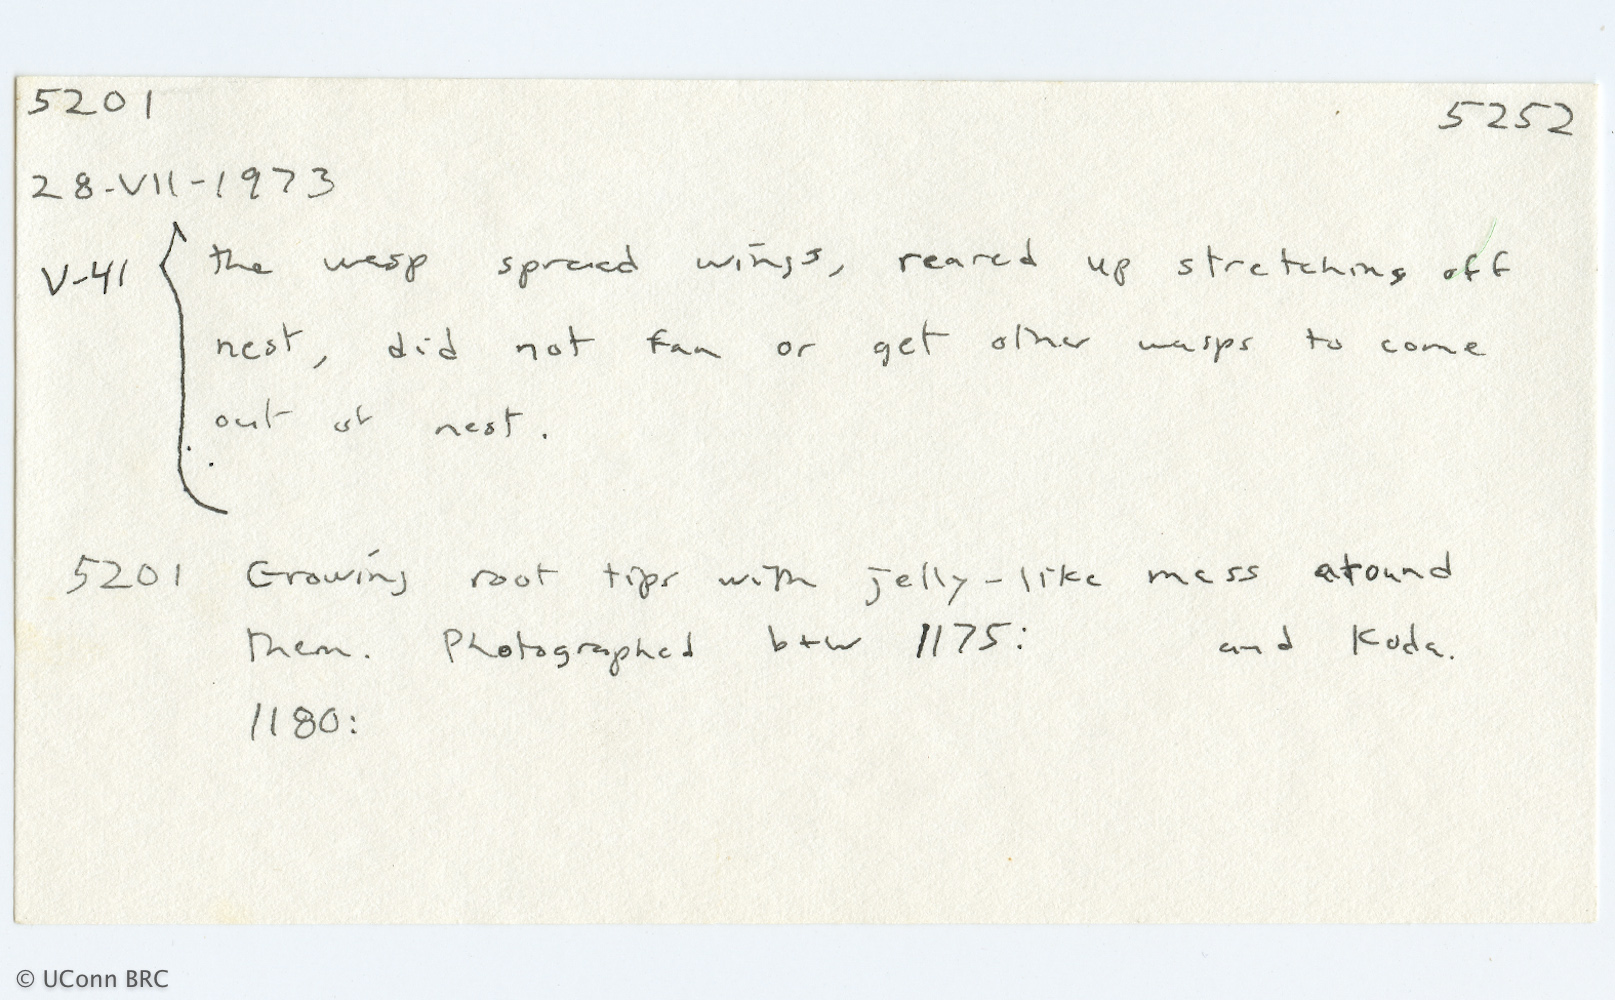 5201 5252
28-VII-1973
V-41 { the wasp spread wings, reared up stretching off
nest, did not fan or get other wasps to come
out of nest.
5201 Growing root tips with jelly-like mass around
them. Photographed b+w 1175: and Koda.
1180:
© UConn BRC